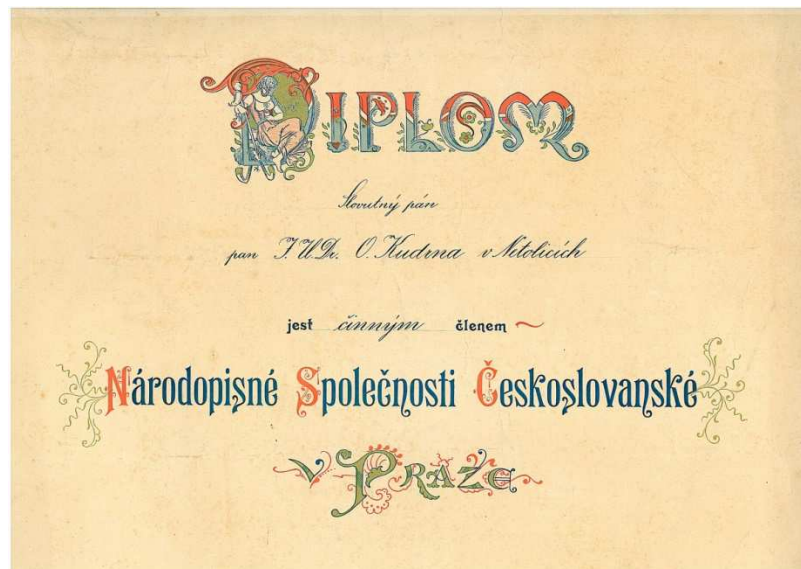 DIPLOM
Slovutný pán
pan J.U.Dr. O. Kudrna v Netolicích
jest činným členem
Národopisné Společnosti Českoslovanské
v PRAZE